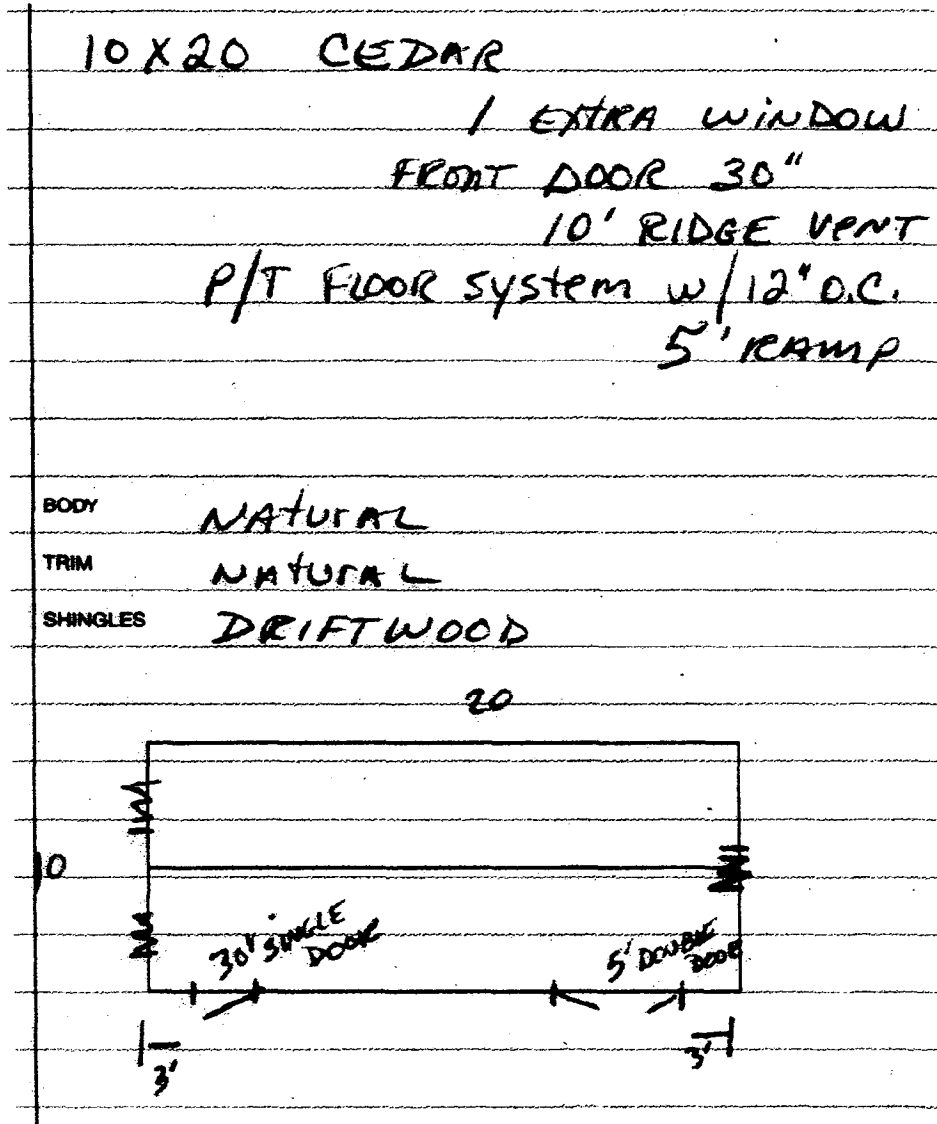 10 X 20 CEDAR
1 EXTRA WINDOW
FRONT DOOR 30"
10' RIDGE VENT
P/T FLOOR SYSTEM W/12" O.C.
5' RAMP
BODY NATURAL
TRIM NATURAL
SHINGLES DRIFTWOOD
20
10
30" SINGLE DOOR
5' DOUBLE DOOR
3'
3'